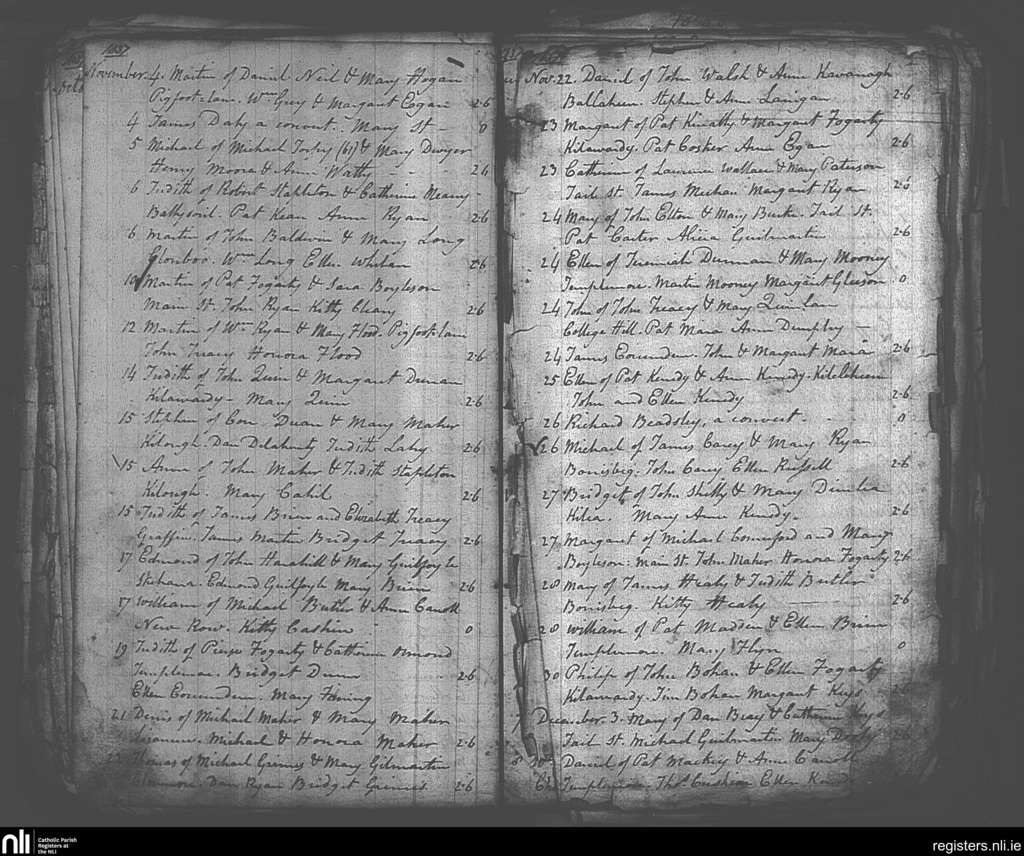 1837
November 4. Martin of Daniel Neil & Mary Hogan
Pigfoot-lane. Wm Guy & Margaret Egan 2-6
4 James Daly a convert. Mary St - 0
5 Michael of Michael (61) & Mary Dwyer
Henry Moore & Anne Watts 2 6
6 Judith of Robert Stapleton & Catherine Meany
Pat Kean Anne Ryan 2-6
6 Martin of John Baldwin & Mary Long
Glenboo. Wm Long Ellen Whelan 2-6
10 Martin of Pat Fogarty & Sara Boyleson
Main St. John Ryan Kitty Cleary 2-6
12 Martin of Wm Ryan & Mary Flood. Pigfoot-lane
John Treacy Honora Flood 2-6
14 Judith of John Quin & Margaret Dunan
Kilawardy - Mary Quin 2-6
15 Stephen of Con. Dwan & Mary Maher
Kilough. Dan Delahunty Judith Lahy 2-6
15 Anne of John Maher & Judith Stapleton
Kilough. Mary Cahil 2-6
15 Judith of James Brien and Elizabeth Treacy
Graffin. James Martin Bridget Treacy 2-6
17 Edmond of John Hanahill & Mary Guilfoyle
Skehana. Edmond Guilfoyle Mary Brien 2-6
17 William of Michael Butler & Anne Carroll
New Row. Kitty Cashin 0
19 Judith of Pierse Fogarty & Catherine Ormond
Templemore. Bridget Dunn 2-6
Ellen Mary
21 Denis of Michael Maher & Mary Maher
Michael & Honora Maher 2-6
Thomas of Michael Grimes & Mary Gilmartin
Dan Ryan Bridget Grimes 2-6
Nov. 22. Daniel of John Walsh & Anne Kavanagh
Ballaheen. Stephen & Anne Lanigan 2-6
23 Margaret of Pat & Margaret Fogarty
Kilawardy. Pat Cosker Anne Egan 2-6
23 Catherine of Laurence Wallace & Mary Paterson
Jail St. James Meehan Margaret Ryan 2-6
24 Mary of John Elton & Mary Burke. Jail St.
Pat Carter Alicia Guilmartin 2-6
24 Ellen of Jeremiah Dunnan & Mary Mooney
Templemore. Martin Mooney Margaret Gleeson 0
24 John of John Treacy & Mary Quinlan
College Hill. Pat Mara Anne Dempsy -
24 James John & Margaret Mara 2-6
25 Ellen of Pat Kenedy & Anne Kenedy.
John and Ellen Kenedy 2-6
26 Richard Beadsley, a convert. 0
26 Michael of James Carey & Mary Ryan
Borrisbeg. John Carey Ellen Russell 2-6
27 Bridget of John Shelly & Mary
Kilea. Mary Anne Kenedy. 2-6
27 Margaret of Michael Comerford and Mary
Boyleson: Main St. John Maher Honora Fogarty 2-6
28 Mary of James Healy & Judith Butler
Borrisbeg. Kitty Healy 2-6
28 William of Pat Madden & Ellen Brien
Templemore. Mary Flyn 0
30 Philip of John Bohan & Ellen Fogarty
Kilawardy. Tim Bohan Margaret Keys 2-6
December 3. Mary of Dan Beay & Catherine Keys
Jail St. Michael Guilmartin Mary 2-6
Daniel of Pat Mackey & Anne Carroll
Templemore. Thos. Cushion Ellen
nli Catholic Parish
Registers at
the NLI
registers.nli.ie